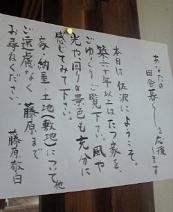 あなたの
田舎暮らしを応援
します
本日は佐沢にようこそ。
築二十年以上はたつ家を、
ごゆっくりご覧下さい。風や
光や、回りの景色も充分に
感じてみて下さい。
家・納屋・土地(敷地)について他
ご遠慮なく藤原まで
お尋ねください。
藤原敬白